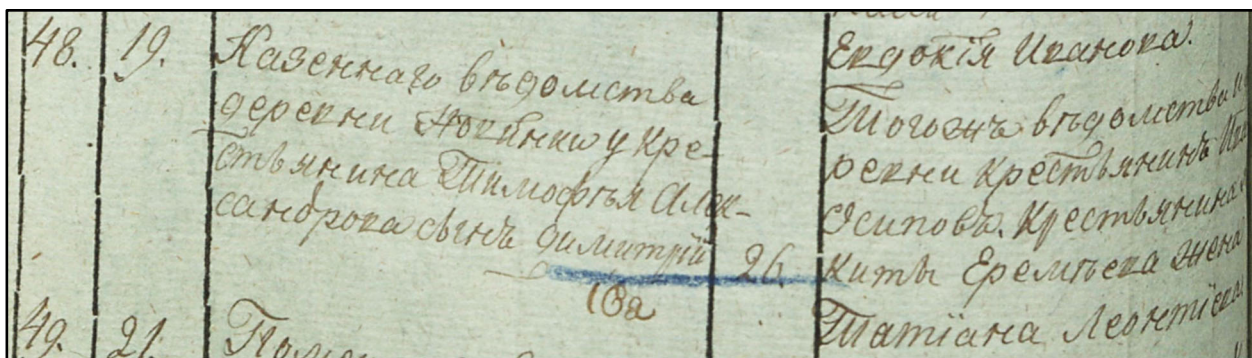 Евдокія Иванова.
48. 19. Казеннаго вѣдомства
деревни Новинки у кре-
стьянина Тимофѣя Алек-
сандрова сынъ Димитрій 26.
Тогожъ вѣдомства и
ревни крестьянинъ
Осиповъ. Крестьянина
киты Еремѣева жена
10а
Татіана Леонтіева
49. 21.